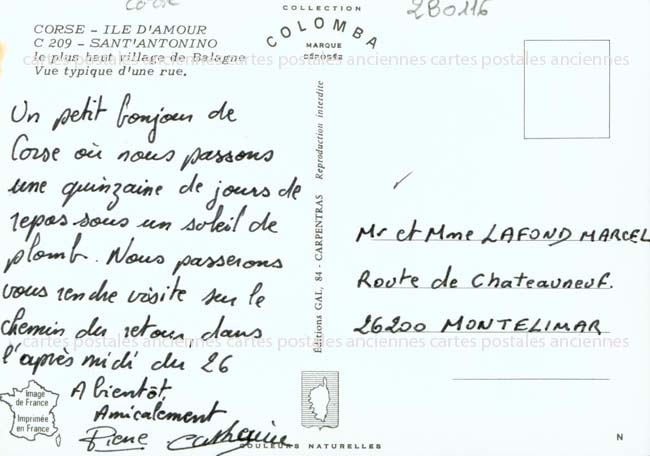 Corse
2B0116
CORSE - ILE D'AMOUR
C 209 - SANT'ANTONINO
le plus haut village de Balagne
Vue typique d'une rue.
COLLECTION
COLOMBA
MARQUE
DÉPOSÉE
cartes postales anciennes cartes postales anciennes cartes postales anciennes
Un petit bonjour de
Corse où nous passons
une quinzaine de jours de
repos sous un soleil de
plomb. Nous passerons
vous rendre visite sur le
chemin du retour, dans
l'après midi du 26
A bientôt,
Amicalement
Pierre Catherine
Éditions GAL, 84 - CARPENTRAS Reproduction interdite
Mr et Mme LAFOND MARCEL
Route de Chateauneuf.
26200 MONTELIMAR
cartes postales anciennes cartes postales anciennes cartes postales anciennes
Image
de France
Imprimée
en France
COULEURS NATURELLES
N